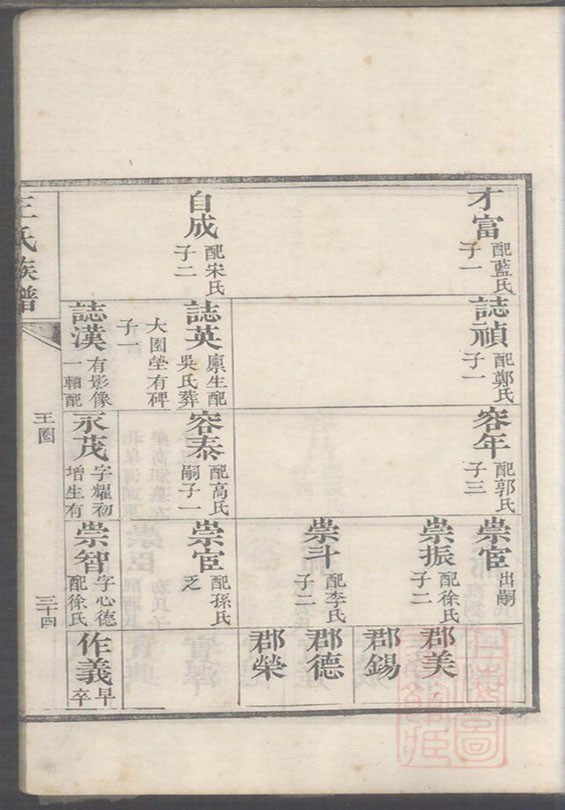 才富 配藍氏 子一
自成 配宋氏 子二
誌禎 配鄭氏 子一
誌英 廪生配吳氏葬大圈塋有碑 子一
誌漢 有影像一軸配
容年 配郭氏 子三
容泰 配高氏 嗣子一
永茂 字耀初增生有
崇宦 出嗣
崇振 配徐氏 子二
崇斗 配李氏 子二
崇宦 配孫氏 乏
崇智 字心德配徐氏
郡美
郡錫
郡德
郡榮
作義 早卒
王氏族譜
王圈
三十四